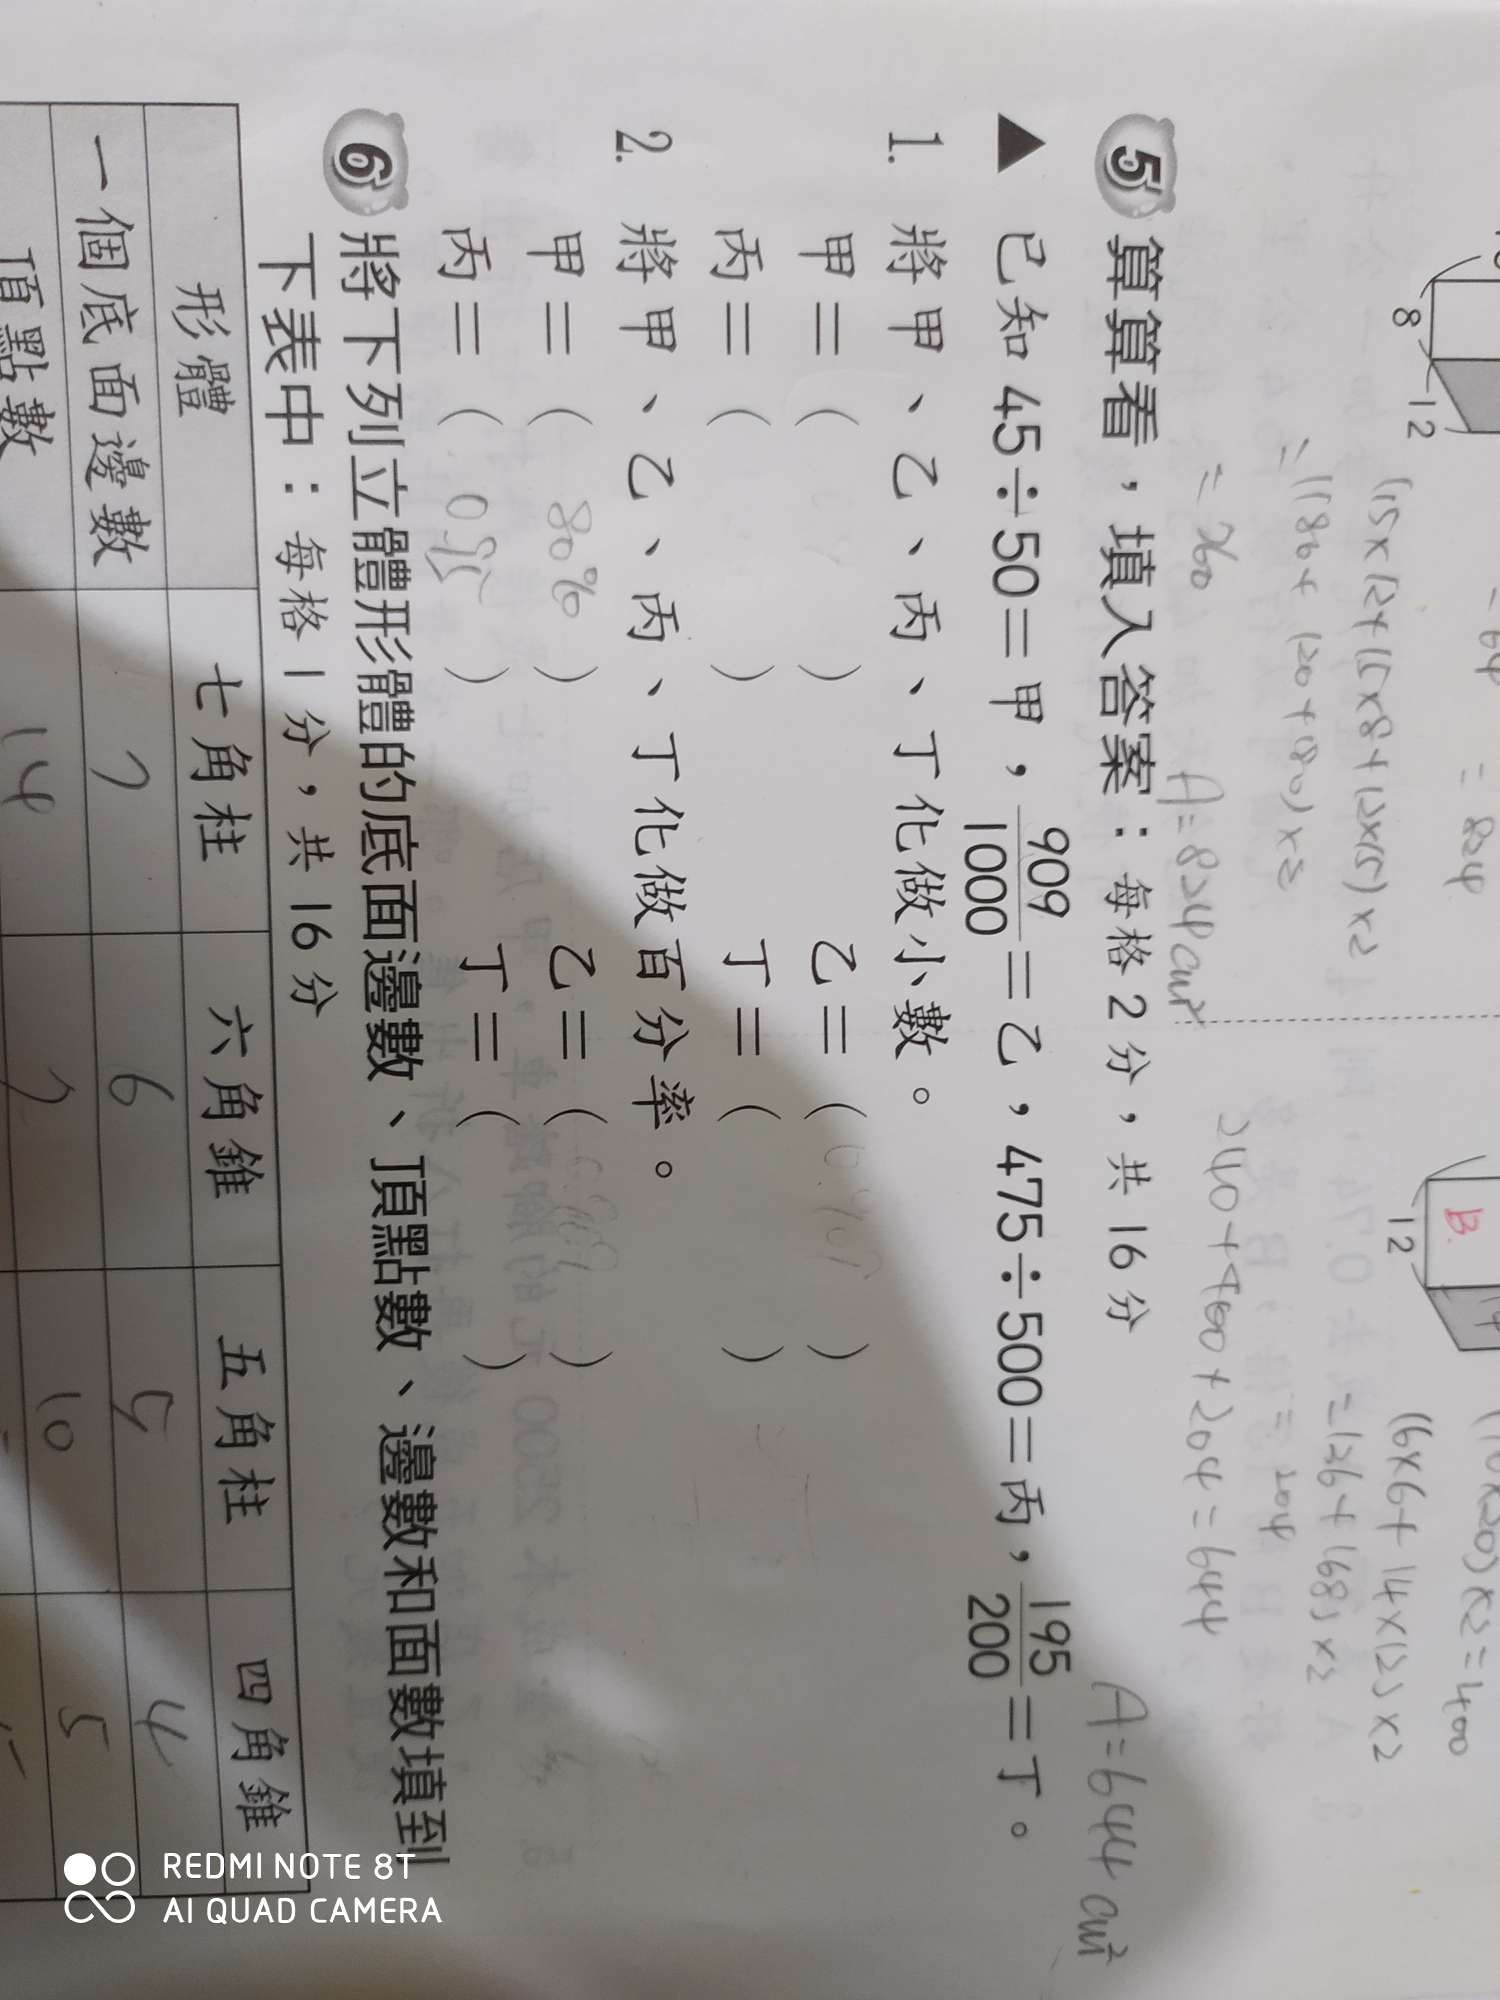 = 824
8
12
(15×12+15×8+12×15)×2
=(180+120+180)×2
A=824cm²
12
B.
=400
(6×6+14×12)×2
=(36+168)×2
204
240+400+204=644
A=644cm²
5 算算看,填入答案:每格2分,共16分
▲ 已知 45÷50=甲,909/1000=乙,475÷500=丙,195/200=丁。
1. 將甲、乙、丙、丁化做小數。
甲=( ) 乙=( )
丙=( ) 丁=( )
2. 將甲、乙、丙、丁化做百分率。
甲=( 80% ) 乙=( )
丙=( ) 丁=( )
6 將下列立體形體的底面邊數、頂點數、邊數和面數填到
下表中:每格1分,共16分
形體 七角柱 六角錐 五角柱 四角錐
一個底面邊數 7 6 5 4
頂點數 14 7 10 5
REDMI NOTE 8T
AI QUAD CAMERA